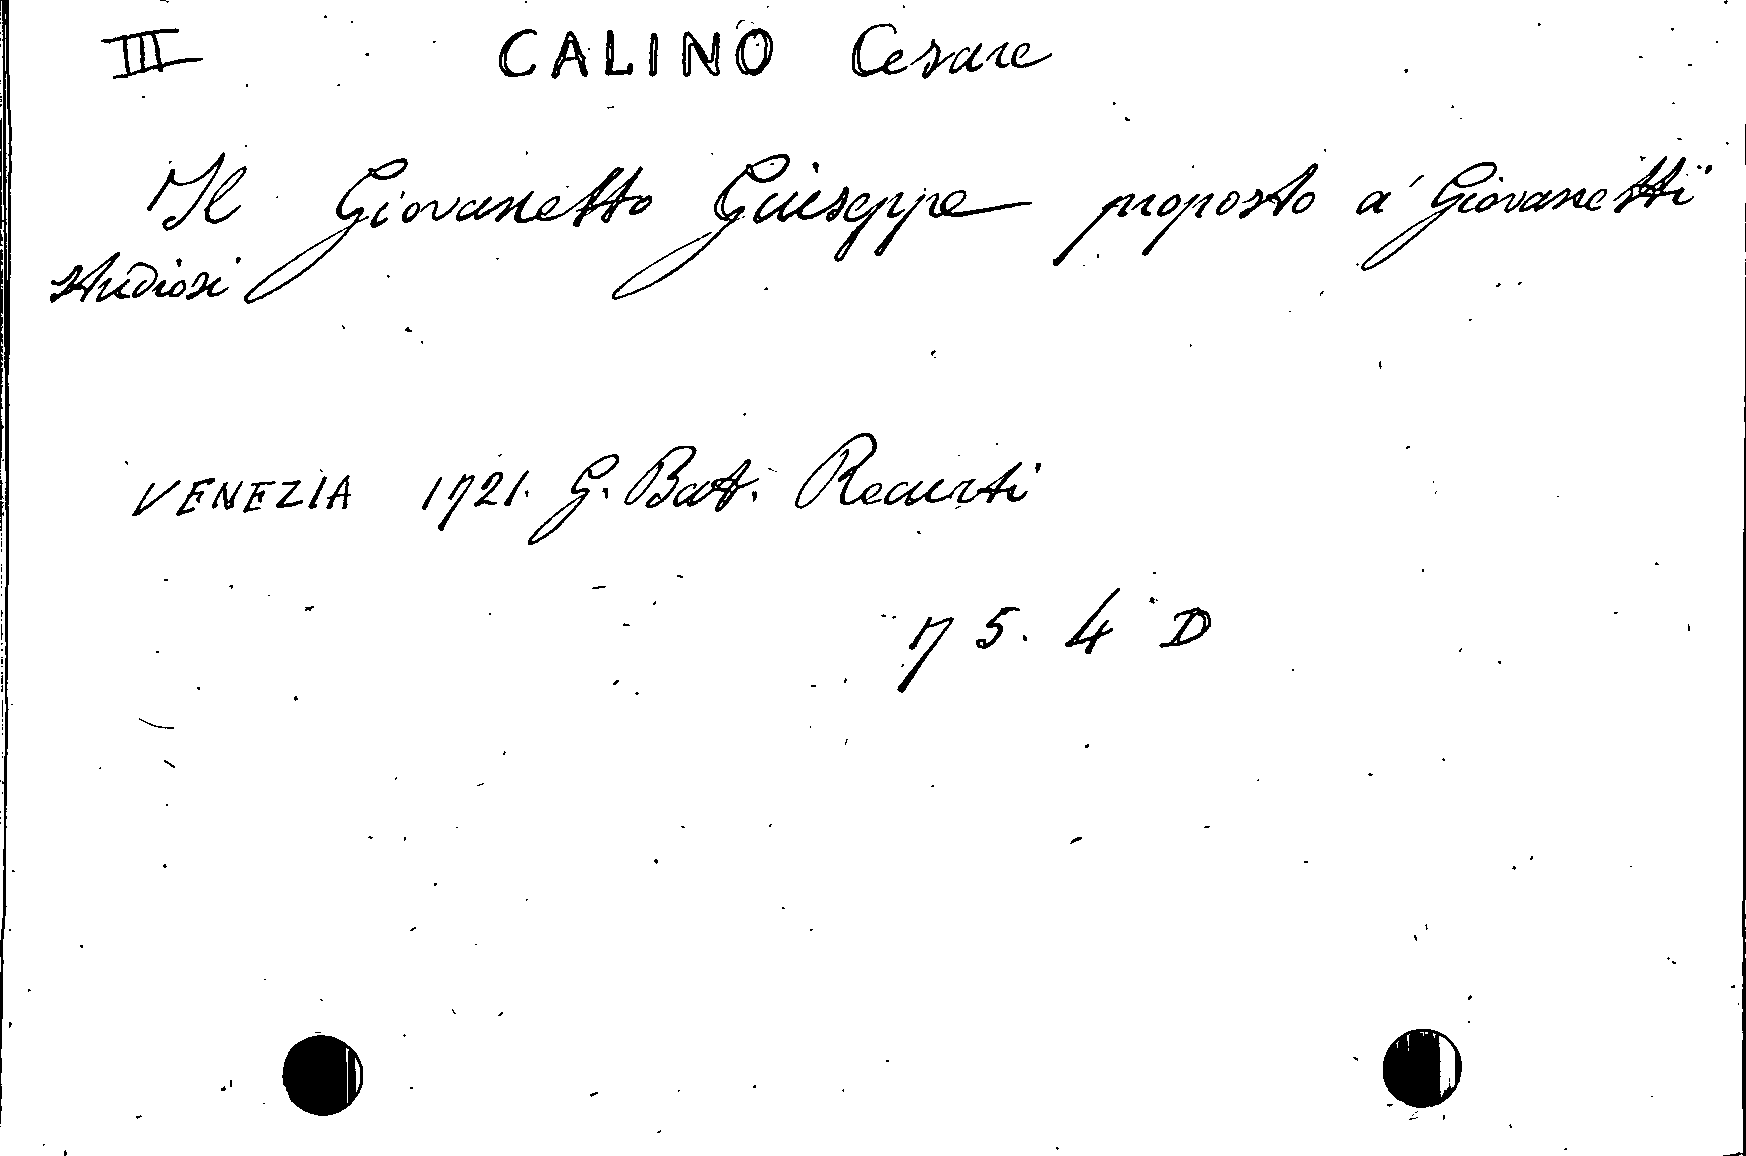 III CALINO Cesare
Il Giovanetto Giuseppe proposto a' Giovanetti
studiosi
VENEZIA 1721. G. Batt. Recurti
75. 4 D